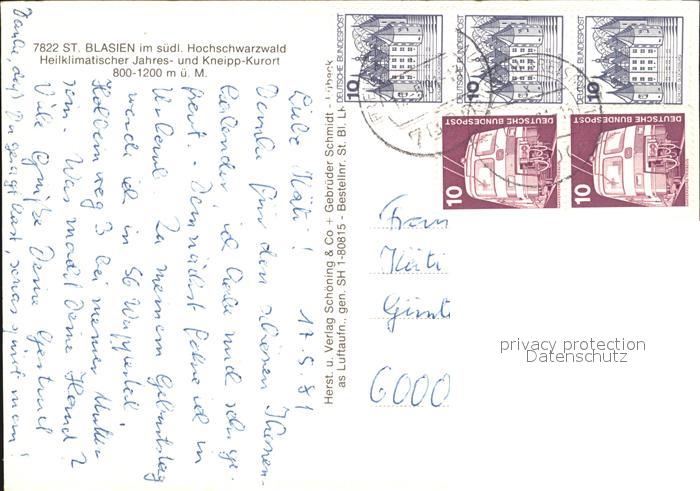 7822 ST. BLASIEN im südl. Hochschwarzwald
Heilklimatischer Jahres- und Kneipp-Kurort
800-1200 m ü. M.
Liebe Käti! 17.5.81
Danke für den schönen
kalender, ich habe mich sehr ge-
freut. Demnächst fahre ich in
Urlaub. Zu meinem Geburtstag
werde ich in 56 Wuppertal
3 bei meiner Mutter
sein. Was macht Deine Hand?
Viele Grüße Deine Gertrud
Danke, daß Du
Herst. u. Verlag Schöning & Co + Gebrüder Schmidt - Lübeck
as Luftaufn., gen. SH 1-80815 - Bestellnr. St. Bl. LK
DEUTSCHE BUNDESPOST
10
DEUTSCHE BUNDESPOST
10
DEUTSCHE BUNDESPOST
10
DEUTSCHE BUNDESPOST
10
DEUTSCHE BUNDESPOST
10
Frau
Käti
6000
privacy protection
Datenschutz